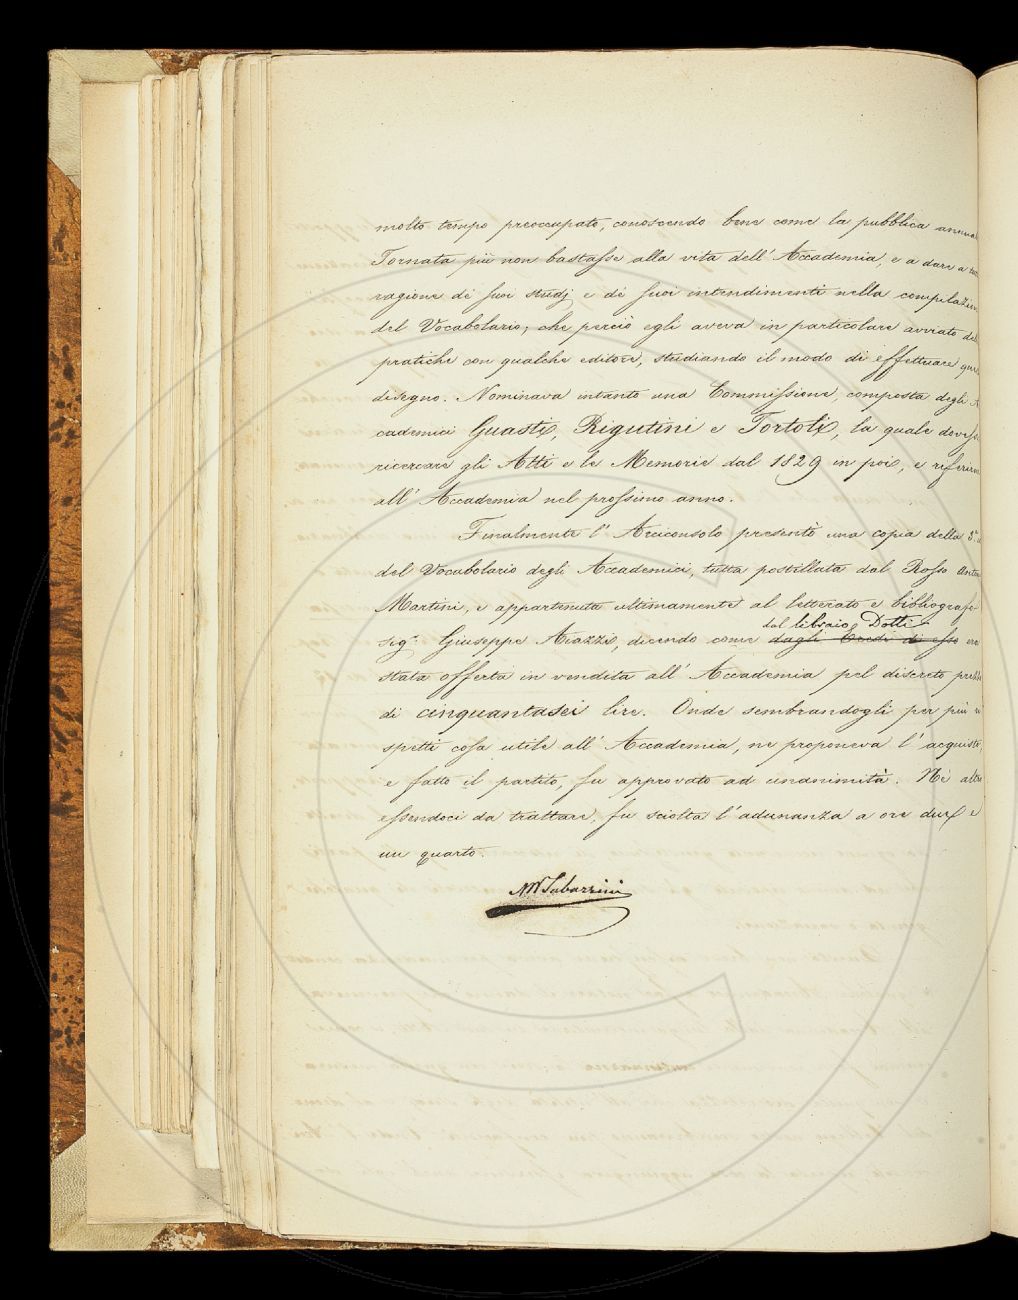 molto tempo preoccupato, conoscendo bene come la pubblica annua
Tornata più non bastasse alla vita dell' Accademia, e a dare a
ragione de' suoi studj e de' suoi intendimenti nella compilazion
del Vocabolario; che perciò egli aveva in particolare avviato del
pratiche con qualche editore, studiando il modo di effettuare ques
disegno. Nominava intanto una Commissione, composta degli A
cademici Guasti, Rigutini e Tortoli, la quale doves
ricercare gli Atti e le Memorie dal 1829 in poi, e riferirn
all' Accademia nel prossimo anno.
Finalmente l' Arciconsolo presentò una copia della 3.ª
del Vocabolario degli Accademici, tutta postillata dal Rosso Anto
Martini, e appartenuta ultimamente al letterato e bibliografo
dal libraio Dotti
sig.r Giuseppe Aiazzi, dicendo come dagli Eredi di esso era
stata offerta in vendita all' Accademia pel discreto prezz
di cinquantasei lire. Onde sembrandogli per più ri
spetti cosa utile all' Accademia, ne proponeva l' acquisto,
e fatto il partito, fu approvato ad unanimità. Nè altro
essendoci da trattare, fu sciolta l' adunanza a ore due e
un quarto.
M Tabarrini